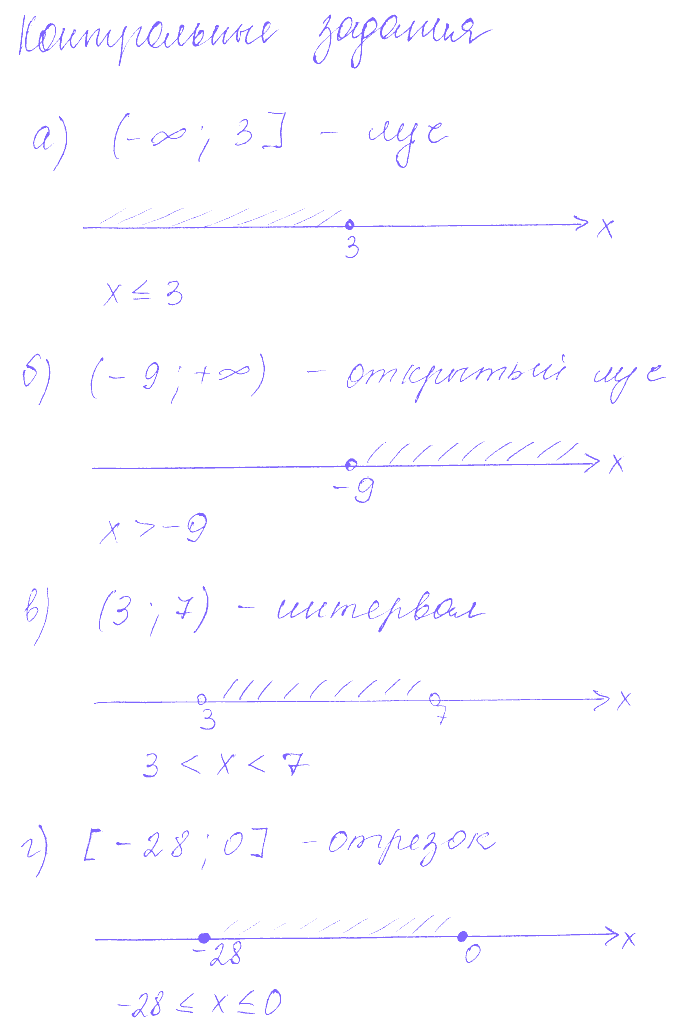 Контрольные задания
а) (-∞; 3] - луч
x
3
x ≤ 3
б) (-9; +∞) - открытый луч
x
-9
x > -9
в) (3; 7) - интервал
x
3 7
3 < x < 7
г) [-28; 0] - отрезок
x
-28 0
-28 ≤ x ≤ 0